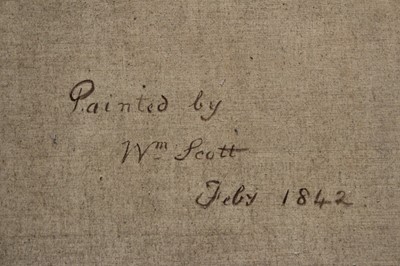 Painted by
Wm Scott
Feby 1842